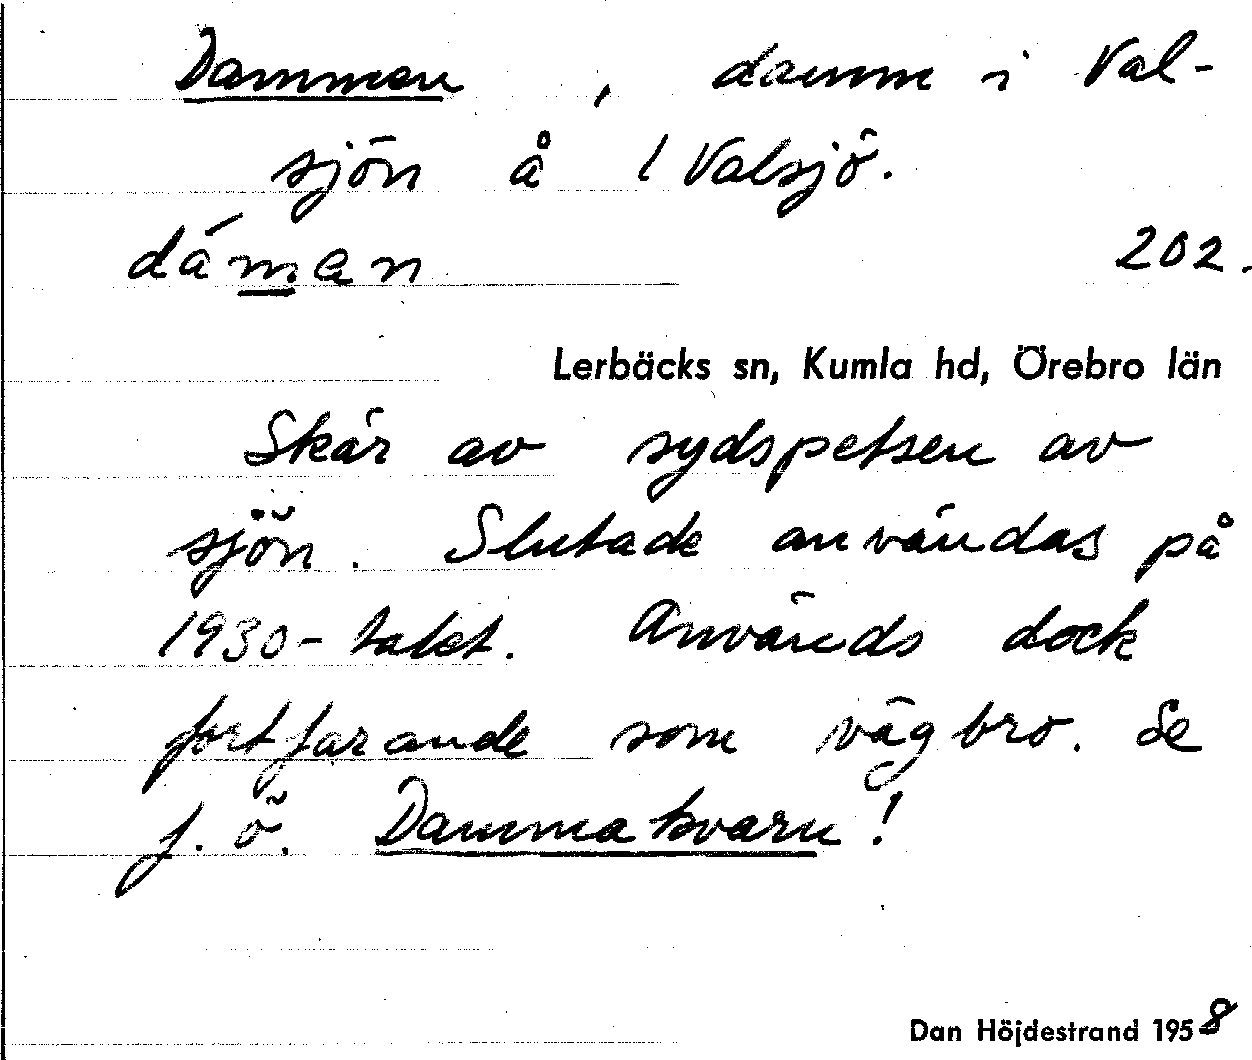 Dammen, damm i Val-
sjön å 1 Valsjö.
dáman 202.
Lerbäcks sn, Kumla hd, Örebro län
Skär av sydspetsen av
sjön. Slutade användas på
1930-talet. Används dock
fortfarande som vägbro. Se
f. ö. Dammakvarn!
Dan Höjdestrand 1958